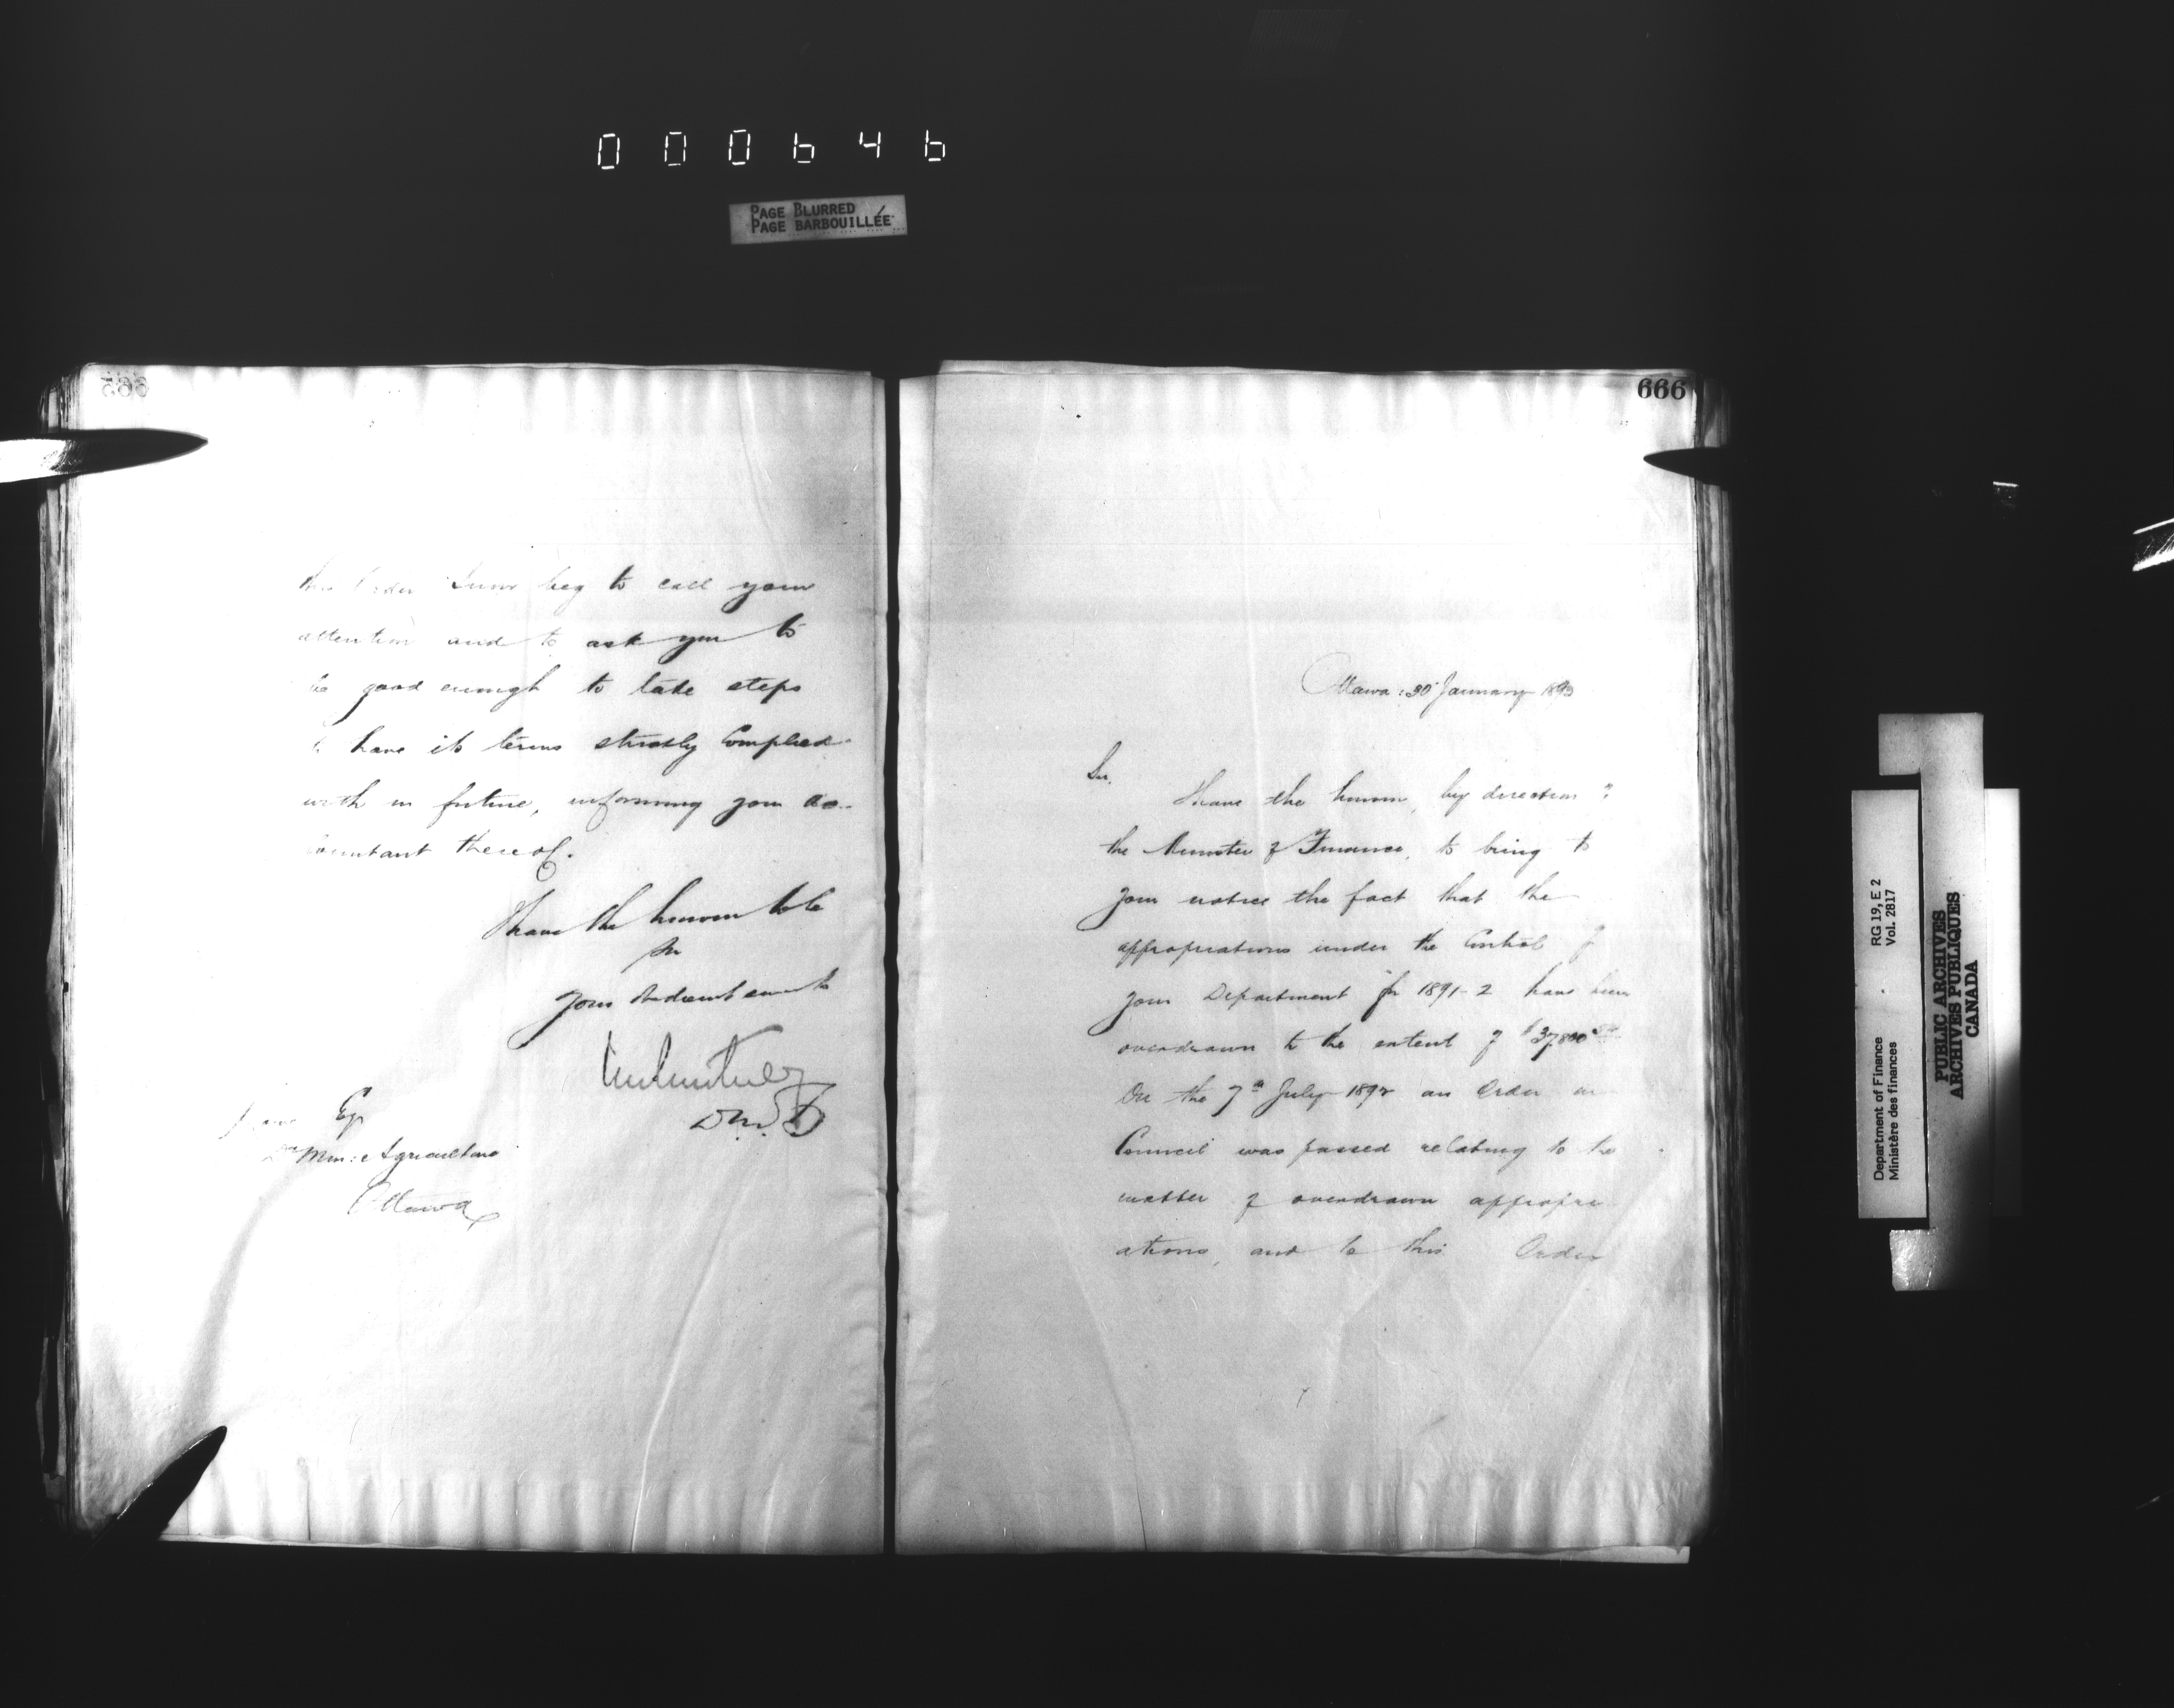 000646
PAGE BLURRED
PAGE BARBOUILLÉE
665
this Order I now beg to call your
attention and to ask you to
be good enough to take steps
to have its terms strictly Complied
with in future, informing your Ac-
countant thereof.
I have the honour to be
Sir
Your Obedient servant
D.M.F.
Esq
Min: Agriculture
Ottawa
666
Ottawa: 30 January 1893
Sir.
I have the honour, by direction of
the Minister of Finance, to bring to
your notice the fact that the
appropriations under the Control of
your Department for 1891-2 have been
overdrawn to the extent of $37,800
On the 7th July 1892 an Order in
Council was passed relating to the
matter of overdrawn appropri
ations, and to this Order
Department of Finance RG 19, E 2
Ministère des finances Vol. 2817
PUBLIC ARCHIVES
ARCHIVES PUBLIQUES
CANADA